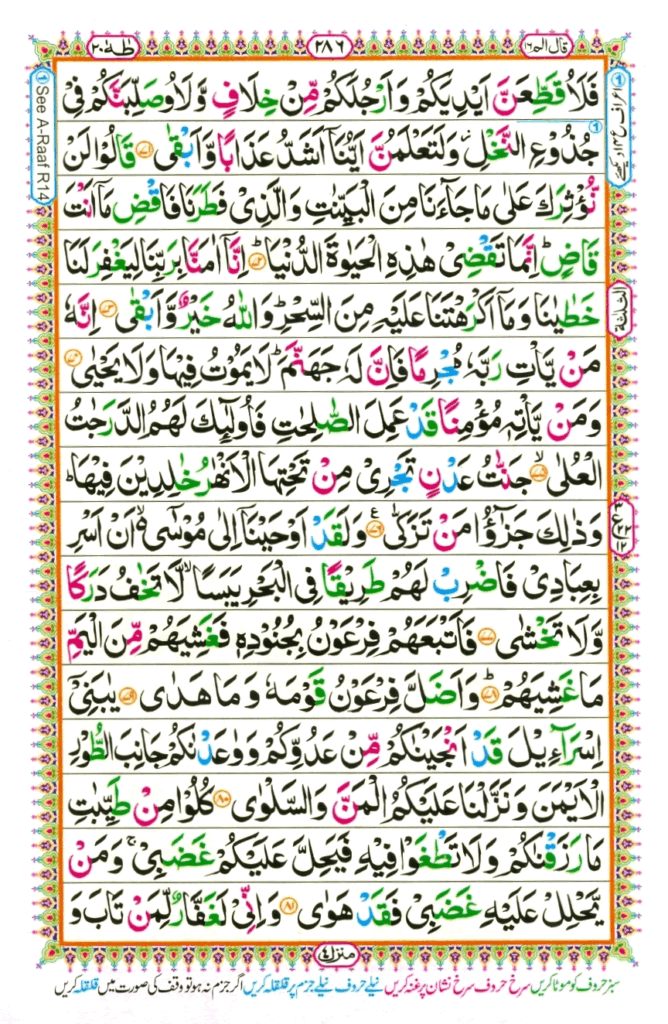 طٰهٰ ٢٠
٢٨٦
قال الم ١٦
فَلَاُ قَطِّعَنَّ اَیْدِیَكُمْ وَاَرْجُلَكُمْ مِّنْ خِلَافٍ وَّلَاُوصَلِّبَنَّكُمْ فِیْ
جُذُوْعِ النَّخْلِ٘ وَلَتَعْلَمُنَّ اَیُّنَاۤ اَشَدُّ عَذَابًا وَّاَبْقٰی ﴿٧١﴾ قَالُوْا لَنْ
نُّؤْثِرَكَ عَلٰی مَا جَآءَنَا مِنَ الْبَیِّنٰتِ وَالَّذِیْ فَطَرَنَا فَاقْضِ مَاۤ اَنْتَ
قَاضٍ ؕ اِنَّمَا تَقْضِیْ هٰذِهِ الْحَیٰوةَ الدُّنْیَا ؕ ﴿٧٢﴾ اِنَّاۤ اٰمَنَّا بِرَبِّنَا لِیَغْفِرَ لَنَا
خَطٰیٰنَا وَمَاۤ اَكْرَهْتَنَا عَلَیْهِ مِنَ السِّحْرِ ؕ وَاللّٰهُ خَیْرٌ وَّاَبْقٰی ﴿٧٣﴾ اِنَّهٗ
مَنْ یَّاْتِ رَبَّهٗ مُجْرِمًا فَاِنَّ لَهٗ جَهَنَّمَ ؕ لَا یَمُوْتُ فِیْهَا وَلَا یَحْیٰی ﴿٧٤﴾
وَمَنْ یَّاْتِهٖ مُؤْمِنًا قَدْ عَمِلَ الصّٰلِحٰتِ فَاُولٰٓئِكَ لَهُمُ الدَّرَجٰتُ
الْعُلٰی ۙ ﴿٧٥﴾ جَنّٰتُ عَدْنٍ تَجْرِیْ مِنْ تَحْتِهَا الْاَنْهٰرُ خٰلِدِیْنَ فِیْهَا ؕ
وَذٰلِكَ جَزٰٓؤُا مَنْ تَزَكّٰی ﴿٧٦﴾ وَلَقَدْ اَوْحَیْنَاۤ اِلٰی مُوْسٰۤی ۙ اَنْ اَسْرِ
بِعِبَادِیْ فَاضْرِبْ لَهُمْ طَرِیْقًا فِی الْبَحْرِ یَبَسًا ۙ لَّا تَخٰفُ دَرَكًا
وَّلَا تَخْشٰی ﴿٧٧﴾ فَاَتْبَعَهُمْ فِرْعَوْنُ بِجُنُوْدِهٖ فَغَشِیَهُمْ مِّنَ الْیَمِّ
مَا غَشِیَهُمْ ؕ ﴿٧٨﴾ وَاَضَلَّ فِرْعَوْنُ قَوْمَهٗ وَمَا هَدٰی ﴿٧٩﴾ یٰبَنِیْۤ
اِسْرَآءِیْلَ قَدْ اَنْجَیْنٰكُمْ مِّنْ عَدُوِّكُمْ وَوٰعَدْنٰكُمْ جَانِبَ الطُّوْرِ
الْاَیْمَنَ وَنَزَّلْنَا عَلَیْكُمُ الْمَنَّ وَالسَّلْوٰی ﴿٨٠﴾ كُلُوْا مِنْ طَیِّبٰتِ
مَا رَزَقْنٰكُمْ وَلَا تَطْغَوْا فِیْهِ فَیَحِلَّ عَلَیْكُمْ غَضَبِیْ ۚ وَمَنْ
یَّحْلِلْ عَلَیْهِ غَضَبِیْ فَقَدْ هَوٰی ﴿٨١﴾ وَاِنِّیْ لَغَفَّارٌ لِّمَنْ تَابَ وَ
See A-Raaf R14
الثلثة
منزل ٤
سبز حروف کو موٹا کریں سرخ حروف سرخ نشان پر غنہ کریں نیلے حروف نیلے جزم پر قلقلہ کریں اگر جزم نہ ہو تو وقف کی صورت میں قلقلہ کریں